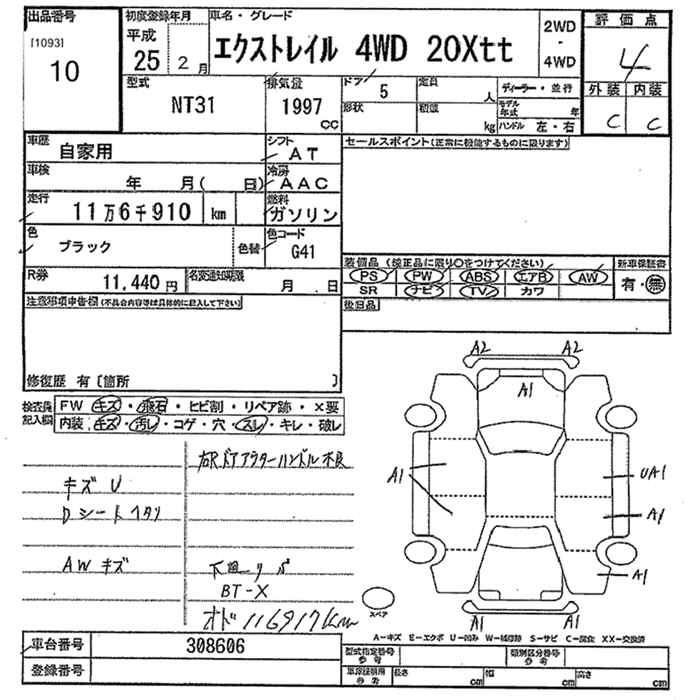 出品番号
[1093]
10
初度登録年月
平成
25 2月
車名・グレード
エクストレイル 4WD 20Xtt
2WD
・
4WD
評価点
4
外装 内装
C C
型式
NT31
排気量
1997
cc
ドア
5
定員
人
形状
積載
kg
ディーラー・並行
モデル年式
年
ハンドル 左・右
車歴
自家用
シフト
AT
車検
年 月( 日)
冷房
AAC
走行
11万6千910 km
燃料
ガソリン
色
ブラック
色替
色コード
G41
R券
11,440円
名変通知期限
月 日
セールスポイント(正常に機能するものに限ります)
装備品 (純正品に限り〇をつけてください)
PS PW ABS エアB AW
SR ナビ TV カワ
新車保証書
有・無
後日品
注意事項申告欄(不具合内容等は具体的に記入して下さい)
修復歴 有〔箇所 〕
検査員記入欄
FW キズ・飛石・ヒビ割・リペア跡・X要
内装 キズ・汚レ・コゲ・穴・スレ・キレ・破レ
右Rドアアウターハンドル不良
キズ U
Dシートヘタリ
AWキズ
BT-X
オド 116917km
A2 A2
A1
A1
UA1
A1
A1
A1 A1
スペア
A-キズ E-エクボ U-凹み W-補修跡 S-サビ C-腐食 XX-交換済
車台番号
308606
登録番号
型式指定番号
参考
類別区分番号
参考
車庫証明用
参考
長さ cm 幅 cm 高さ cm